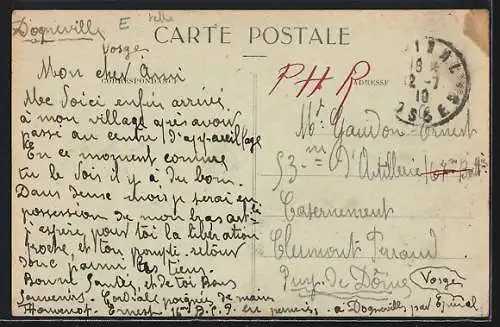 Dogneville E
Vosge
CARTE POSTALE
CORRESPONDANCE
ADRESSE
PHR
Mon cher Ami
Me Voici enfin arrivé
à mon village après avoir
passé au centre d'appareillage
En ce moment comme
tu le vois il y à du bon.
Dans deux mois je serai en
possession de mon bras art
J'espère pour toi la libération
proche, et ton prompt retour
donc parmi les tiens.
Bonne Santée, et de toi Bons
Souvenirs. Cordial poignée de main
Ernest 16me B.C.P. en permis. à Dogneville par Epinal
Vosge
Mr Gaudon Ernest
53me d'Artillerie 64me Battie
Casernement
Clermont Ferrand
Puy-de-Dôme
12-7
19
VOSGES